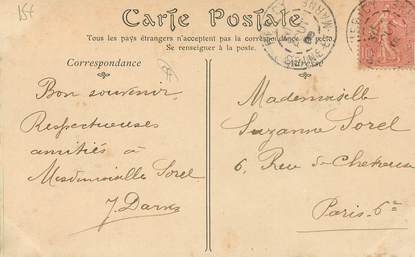 15€
Carte Postale
Tous les pays étrangers n'acceptent pas la correspondance au recto
Se renseigner à la poste.
Correspondance
Bon souvenir.
Respectueuses
amitiés à
Mesdemoiselles Sorel
J. Darns
Mademoiselle
Suzanne Sorel
6, Rue de
Paris-6e